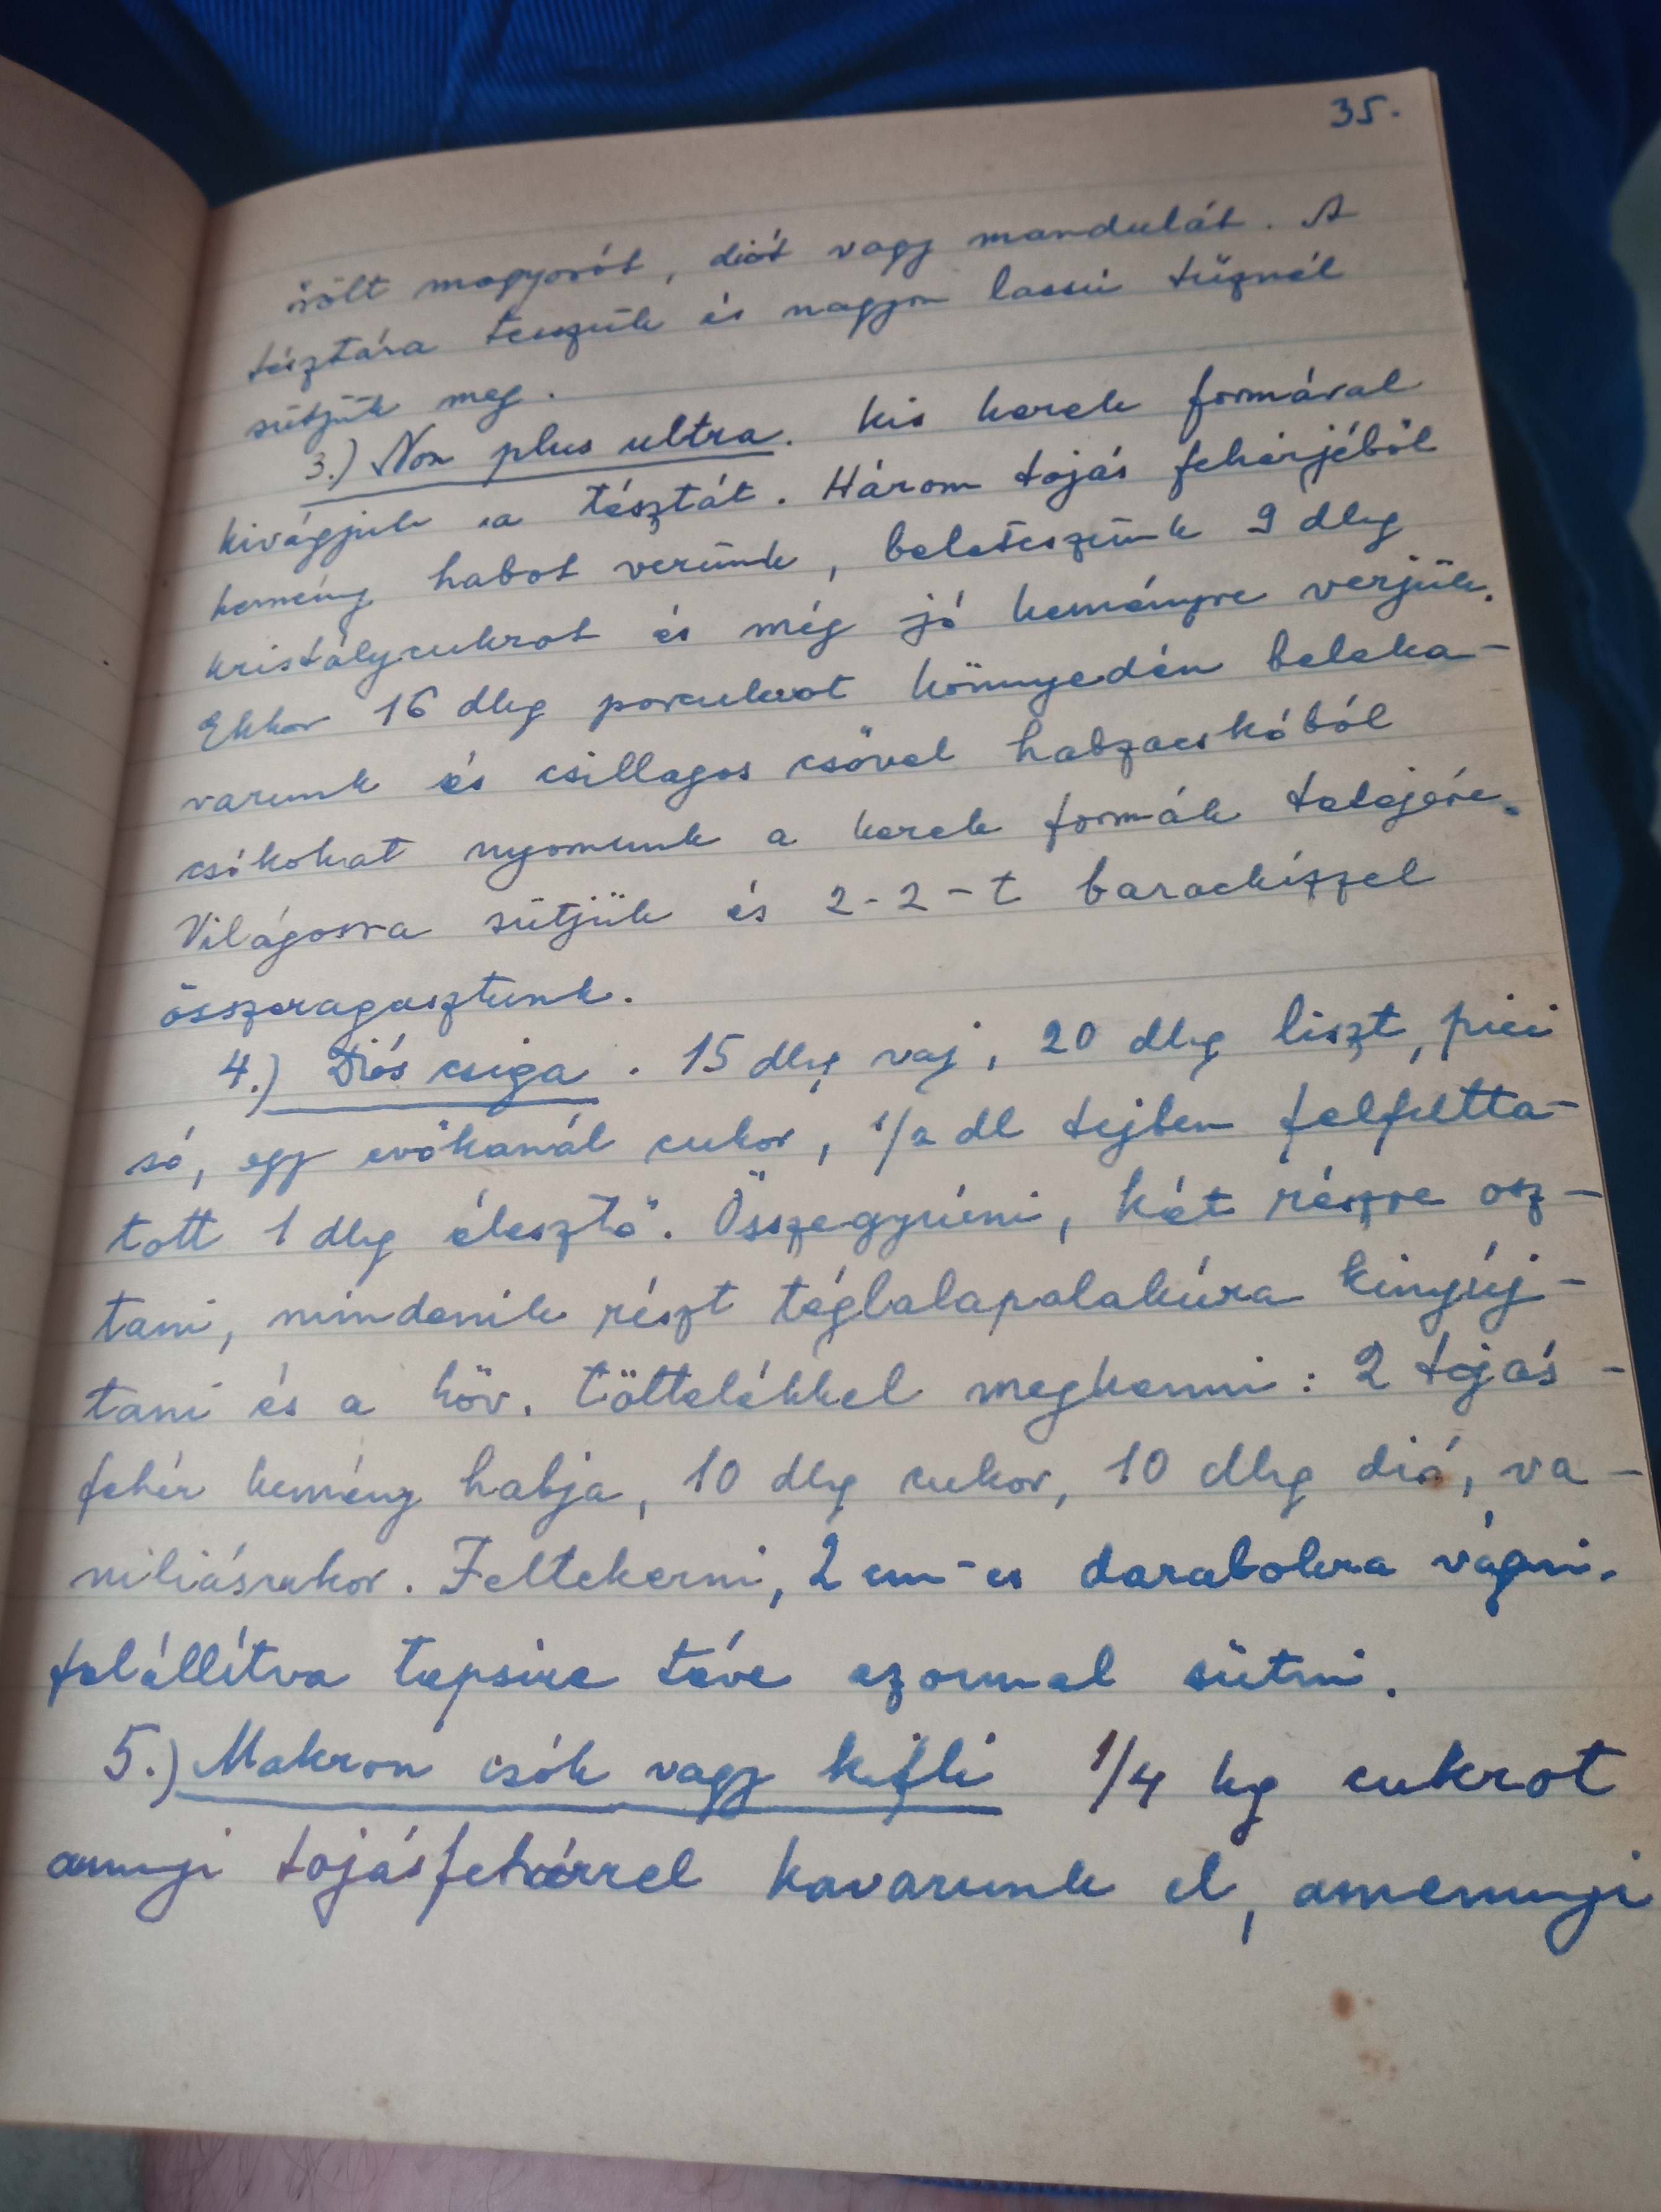 35.
őrölt mogyorót, diót vagy mandulát. A
tésztára tesszük és nagyon lassú tűznél
sütjük meg.
3.) Non plus ultra. Kis kerek formával
kivágjuk a tésztát. Három tojás fehérjéből
kemény habot verünk, beleteszünk 9 dkg
kristálycukrot és még jó keményre verjük.
Ekkor 16 dkg porcukrot könnyedén beleka-
varunk és csillagos csővel habzacskóból
csíkokat nyomunk a kerek formák tetejére.
Világosra sütjük és 2-2-t barackízzel
összeragasztunk.
4.) Diós csiga. 15 dkg vaj, 20 dkg liszt, pici
só, egy evőkanál cukor, 1/2 dl tejben felfutta-
tott 1 dkg élesztő. Összegyúrni, két részre osz-
tani, mindenik részt téglalapalakúra kinyúj-
tani és a köv. töltelékkel megkenni: 2 tojás-
fehér kemény habja, 10 dkg cukor, 10 dkg dió, va-
niliáscukor. Feltekerni, 2 cm-es darabokra vágni,
felállítva tepsire téve azonnal sütni.
5.) Makron csók vagy kifli 1/4 kg cukrot
annyi tojásfehérrel kavarunk el, amennyi